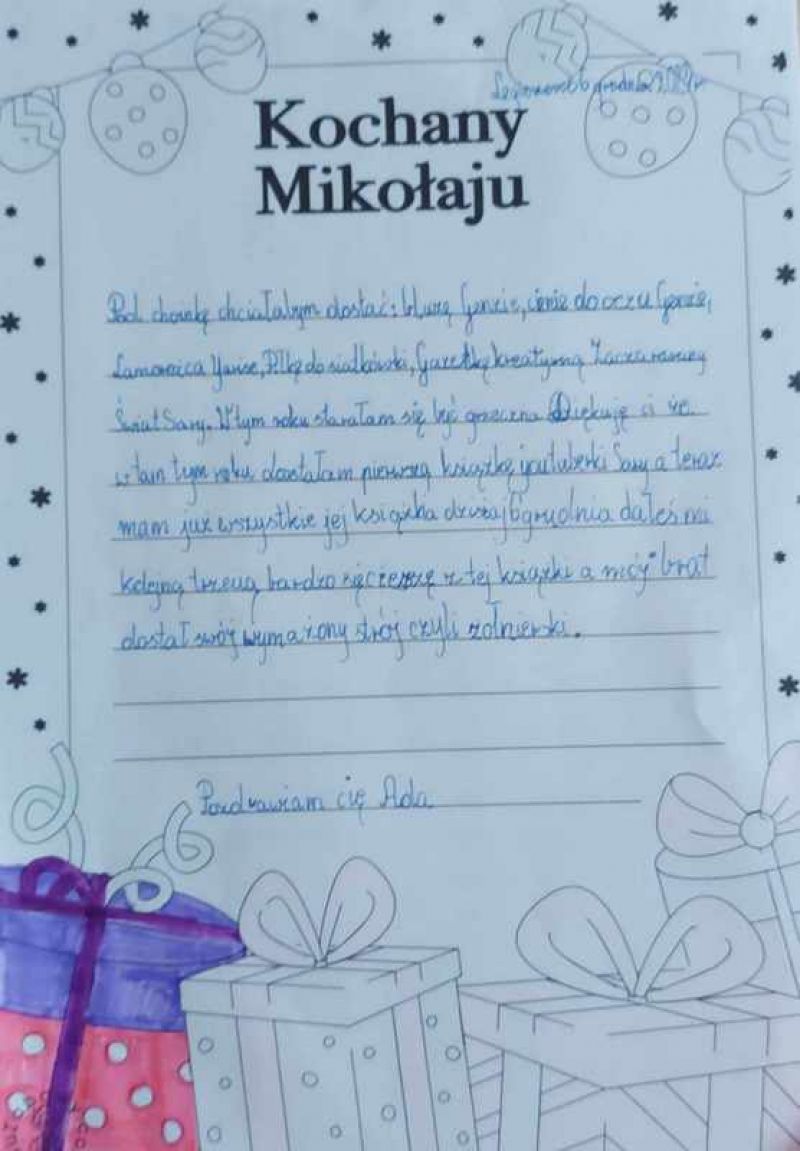 6 grudnia
Kochany
Mikołaju
Pod choinkę chciałabym dostać: bluzę Genzie, cienie do oczu Genzie,
Piłkę do siatkówki, Gazetkę kreatywną Zaczarowany
Świat Sary. W tym roku starałam się być grzeczna Dziękuję ci że
w tym roku dostałam pierwszą książkę youtuberki Sary a teraz
mam już wszystkie jej książka dzisiaj 6 grudnia dałeś mi
kolejną trzecią bardzo się cieszę z tej książki a mój brat
dostał swój wymażony strój czyli żołnierski.
Pozdrawiam cię Ada